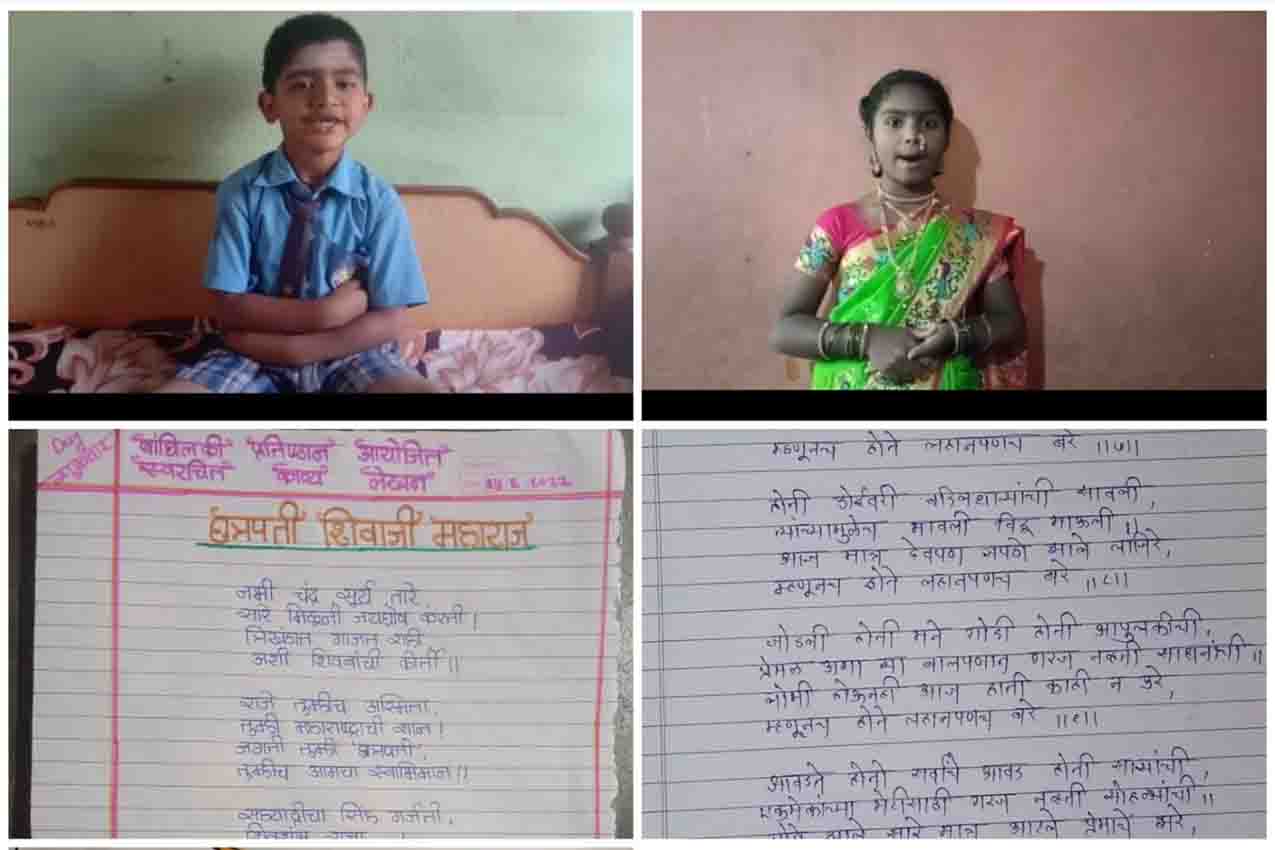 Day
शुक्रवार
बांधिलकी प्रतिष्ठान आयोजित
स्वरचित काव्य लेखन
छत्रपती शिवाजी महाराज
नभी चंद्र सूर्य तारे
सारे मिळूनी जयघोष करती।
त्रिखंडात गाजत राही
अशी शिवबांची कीर्ती॥
राजे तुम्हीच अस्मिता,
तुम्ही महाराष्ट्राची शान।
जगती तुम्ही 'छत्रपती',
तुम्हीच आमचा स्वाभिमान॥
सह्याद्रीचा सिंह गर्जतो,
म्हणूनच होते लहानपणच बरे ॥७॥
होती डोईवरी वडिलधाऱ्यांची सावली,
त्यांच्यामुळेच भावली विठू माऊली॥
आज मात्र देवपण जपणे झाले
म्हणूनच होते लहानपणच बरे ॥८॥
जोडली होती मने गोडी होती आपुलकीची,
प्रेमळ अशा त्या बालपणात गरज नव्हती
लोभी होऊनही आज हाती काही न उरे,
म्हणूनच होते लहानपणच बरे ॥९॥
आवडते होतो सर्वांचे आवड होती साऱ्यांची,
एकमेकांच्या भेटीसाठी गरज नव्हती सोहळ्यांची॥
झाले सारे मात्र आटले प्रेमाचे झरे,